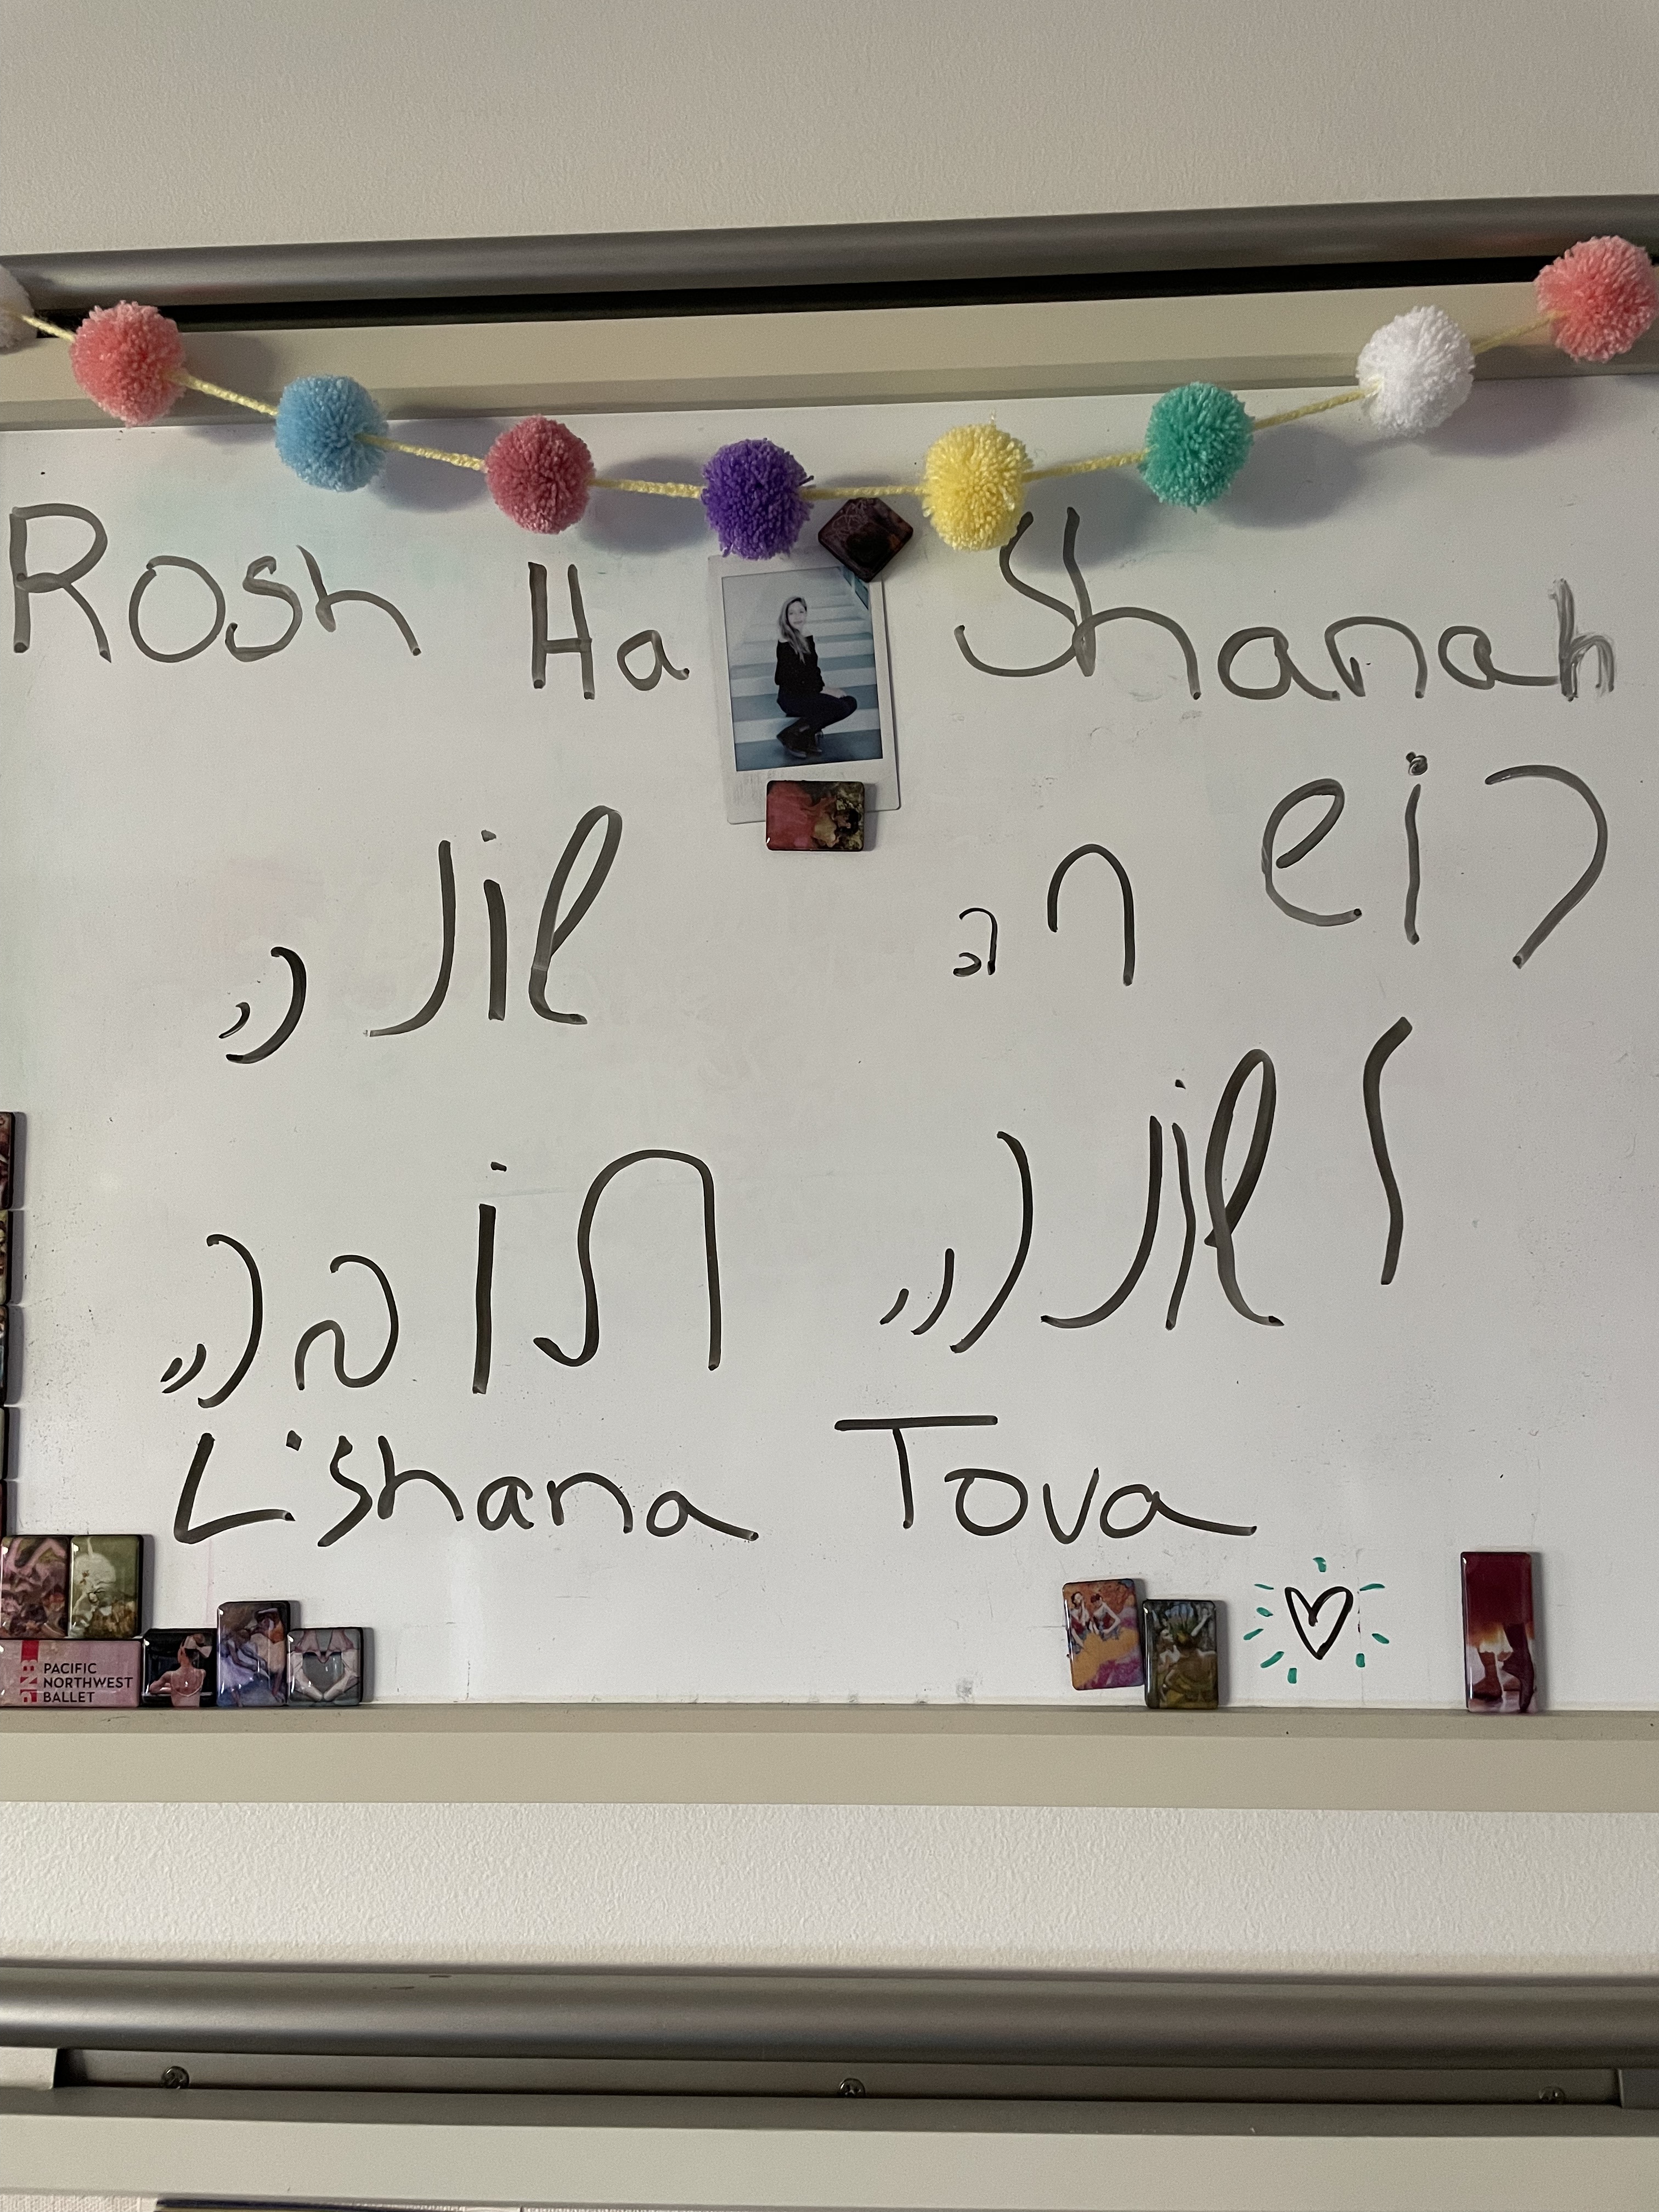 Rosh Ha Shanah
רוֹש שוֹנה
ל שוֹנה תוֹבה
L'shana Tova
PNB PACIFIC
NORTHWEST
BALLET